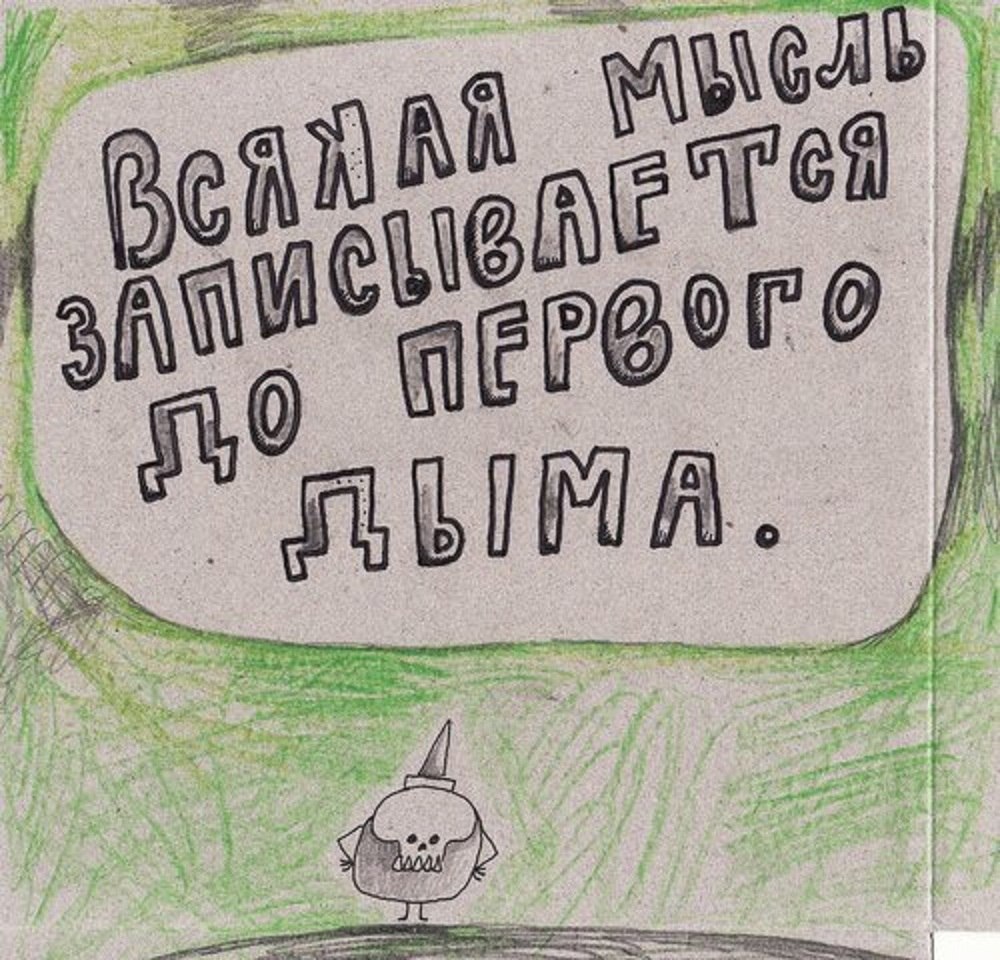 Всякая мысль
записывается
до первого
дыма.